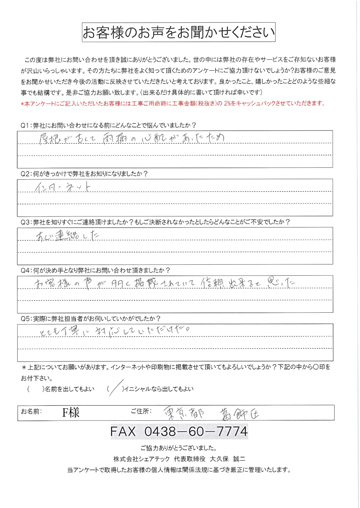 お客様のお声をお聞かせください
この度は弊社にお問い合わせを頂き誠にありがとうございました。世の中には弊社の存在やサービスをご存知ないお客様
が沢山いらっしゃいます。その方たちに弊社をよく知って頂くためのアンケートにご協力頂けないでしょうか？お客様のご意見
をお聞かせいただき今後の活動に反映させていただきたいと考えております。良かったこと、嬉しかったことどのような些細な
事でも結構です。是非ご協力お願い致します。（出来るだけ具体的に書いて頂ければ幸いです）
*本アンケートにご記入いただいたお客様には工事ご用命時に工事金額(税抜き)の2%をキャッシュバックさせていただきます。
Q1：弊社にお問い合わせになる前にどんなことで悩んでいましたか？
屋根が古くて雨漏の心配があったため
Q2：何がきっかけで弊社をお知りになりましたか？
インターネット
Q3：弊社を知りすぐにご連絡頂けましたか？もしご決断されなかったとしたらどんなことがご不安でしたか？
すぐ連絡した
Q4：何が決め手となり弊社にお問い合わせ頂きましたか？
お客様の声が多く掲載されていて信頼出来ると思った
Q5：実際に弊社担当者がお伺いしていかがでしたか？
とても丁寧に対応していただけた。
＊上記についてお願いがあります。インターネットや印刷物に掲載させて頂いてもよろしいでしょうか？下記の中から○印を
お付下さい。
（　）名前を出してもよい　（／）イニシャルなら出してもよい
お名前：　F様　ご住所：　東京都　葛飾区
FAX 0438－60－7774
ご協力ありがとうございました。
株式会社シェアテック 代表取締役 大久保 誠二
当アンケートで取得したお客様の個人情報は関係法規に基づき厳正に管理いたします。